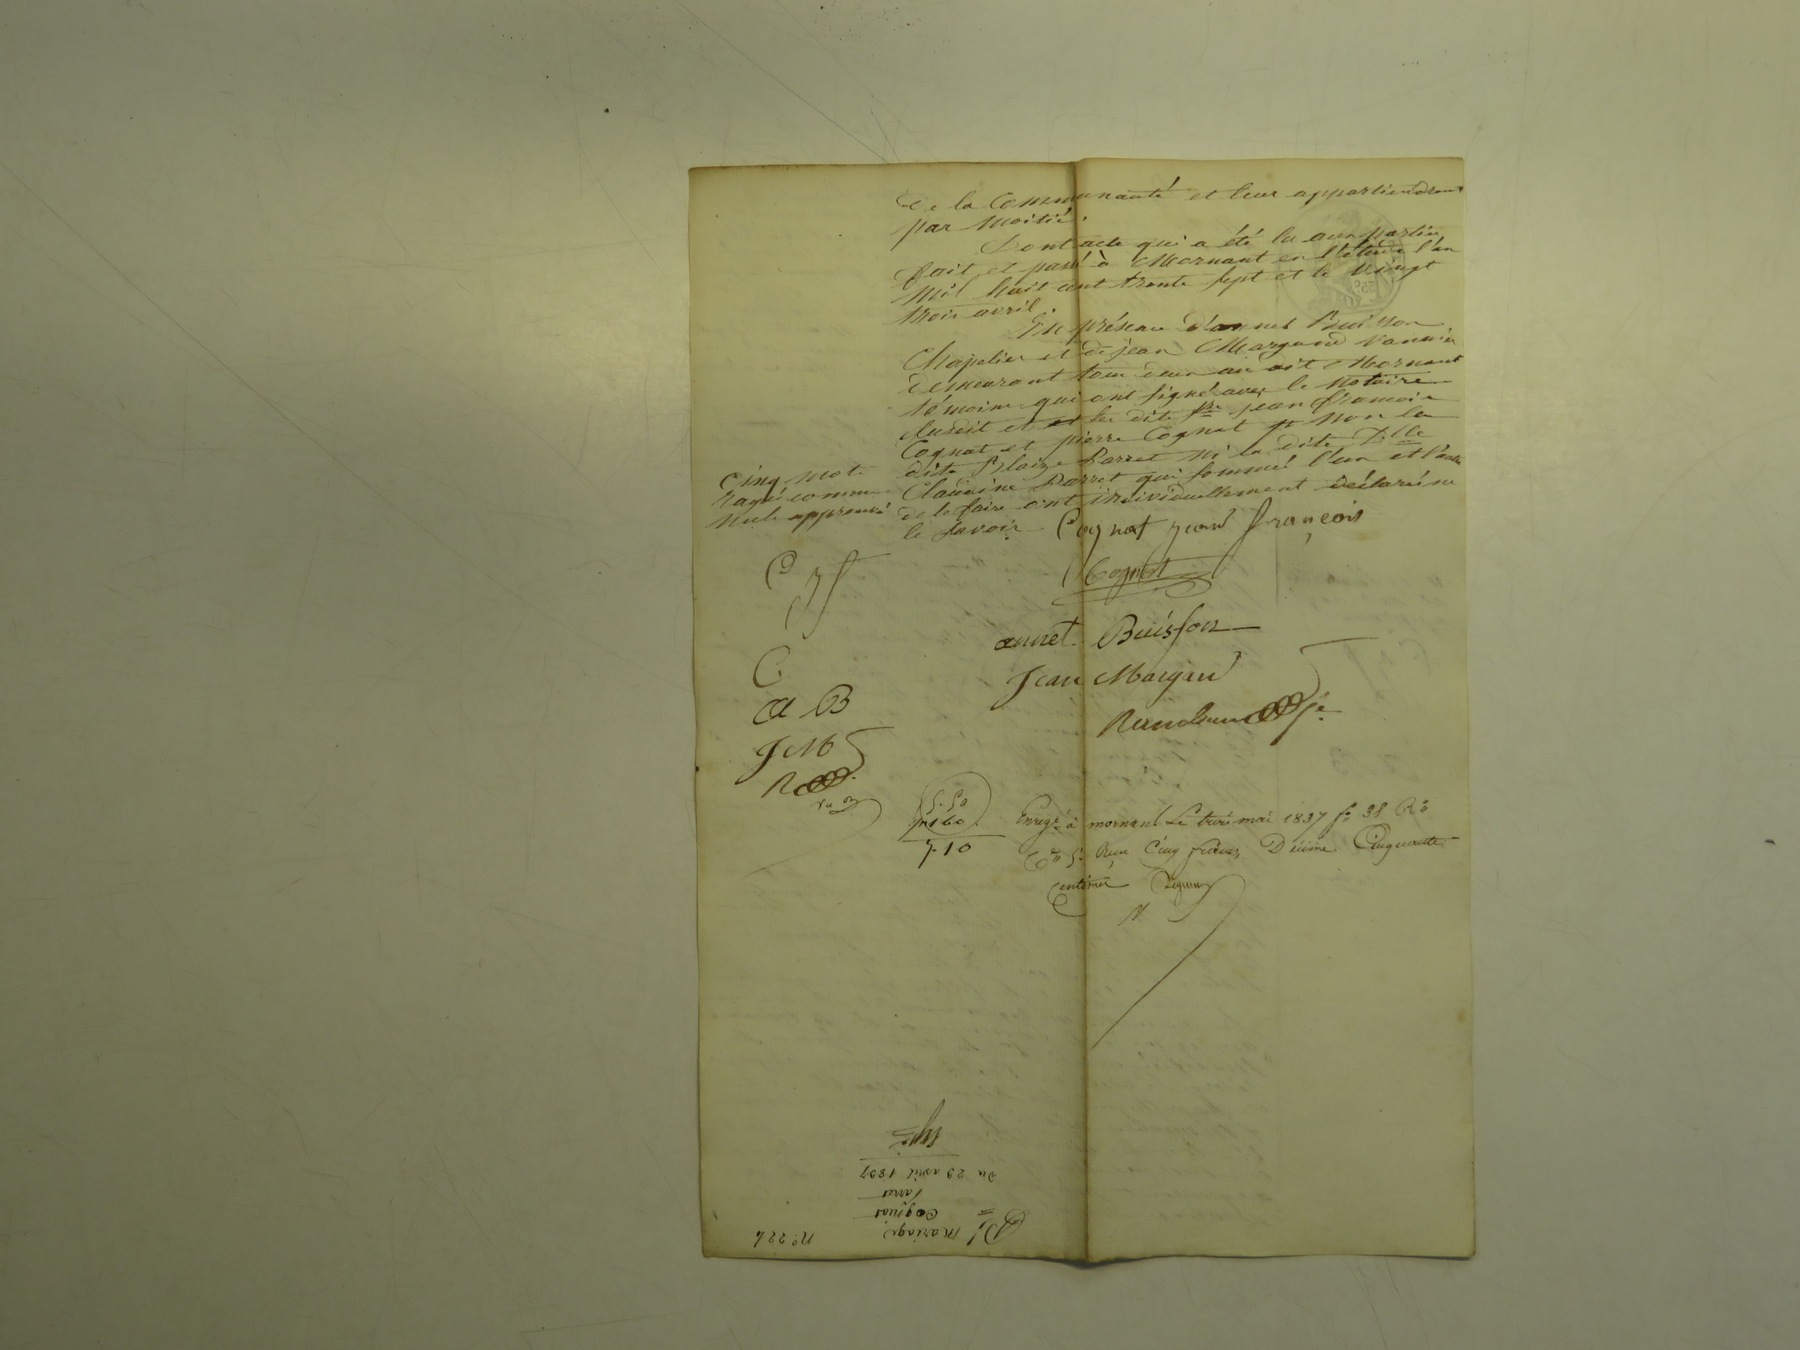 de la Communauté et leur appartiendront
par moitié.
Dont acte qui a été lu aux parties
fait et passé à Mornant en l'étude l'an
mil huit cent trente sept et le vingt
trois avril.
En présence d'annet Buisson
Chapelier et de jean Margand vannier
demeurant tous deux au dit Mornant
témoins qui ont signé avec le Notaire
susdit et les dits jean françois
Cognat et pierre Cognat non le
dit Blaize Parret ni la dite Dlle
Claudine Parret qui sommés l'un et l'autre
de le faire ont individuellement déclaré ne
le savoir.
Cinq mots
rayés comme
nuls approuvés
Cognat jean françois
Cognat
annet Buisson
Jean Margan
C j f
C.
a B
J M
R
5.50
1.60
7.10
Enregé à mornant Le trois mai 1837 fo 38 Ro
Co 5. Reçu Cinq francs, Décime Cinquante
Centimes
No 224
mariage
Cognat
Parret
Du 23 avril 1837